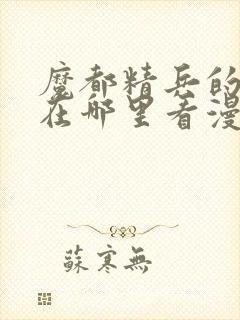 魔都精兵的
在哪里看漫
蘇寒無